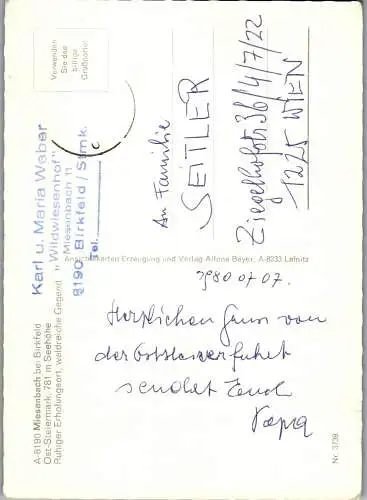 A-8190 Miesenbach bei Birkfeld
Ost-Steiermark, 781 m Seehöhe
Ruhiger Erholungsort, waldreiche Gegend
Karl u. Maria Weber
"Wildwiesenhof"
Miesenbach 11
8190 Birkfeld / Stmk.
Tel.
Verwenden
Sie das
billige
Großporto!
Ansichtskarten Erzeugung und Verlag Alfons Bayer, A-8233 Lafnitz
An Familie
SEITLER
Ziegelhofstr. 36/4/7/22
1225 WIEN
1980 07 07.
Herzlichen Gruss von
der
sendet Euch
Papa
Nr. 3739